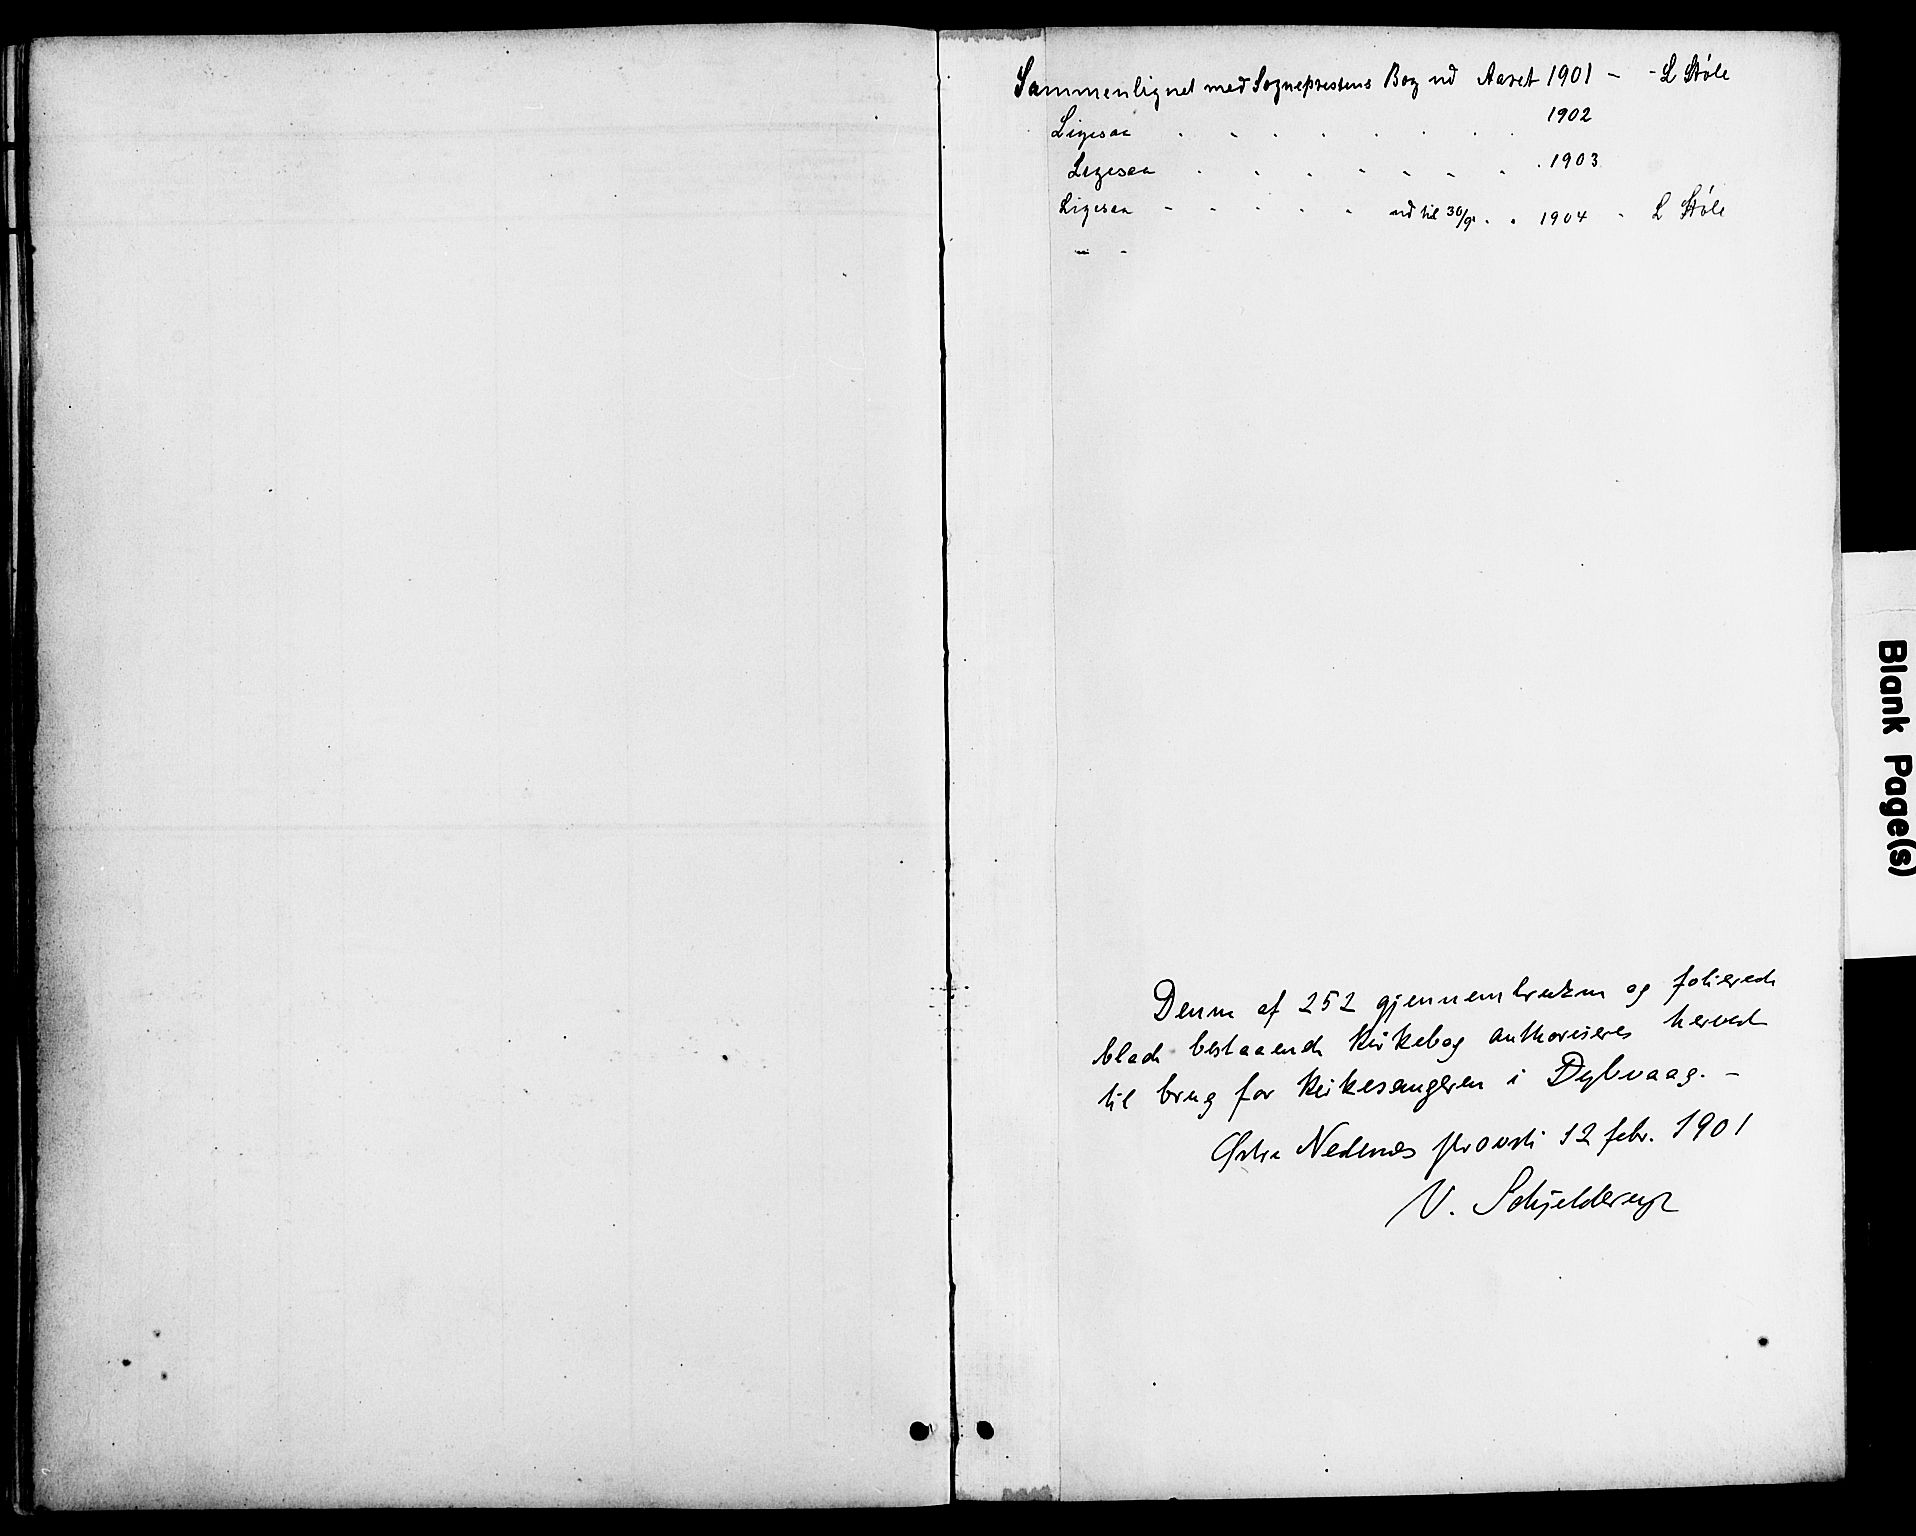 Sammenlignet med Sogneprestens Bog ud Aaret 1901 - - L Støle
Ligesaa . . . . . . . . 1902
Ligesaa . . . . . . . . 1903
Ligesaa - - - - - ud til 30/9 . . 1904 - L Støle
- -
Denne af 252 gjennemtrukne og folierede
blade bestaaende kirkebog authoriseres herved
til brug for kirkesangeren i Dybvaag. -
Østre Nedenes provsti 12 febr. 1901
V. Schjelderup
Blank Page(s)